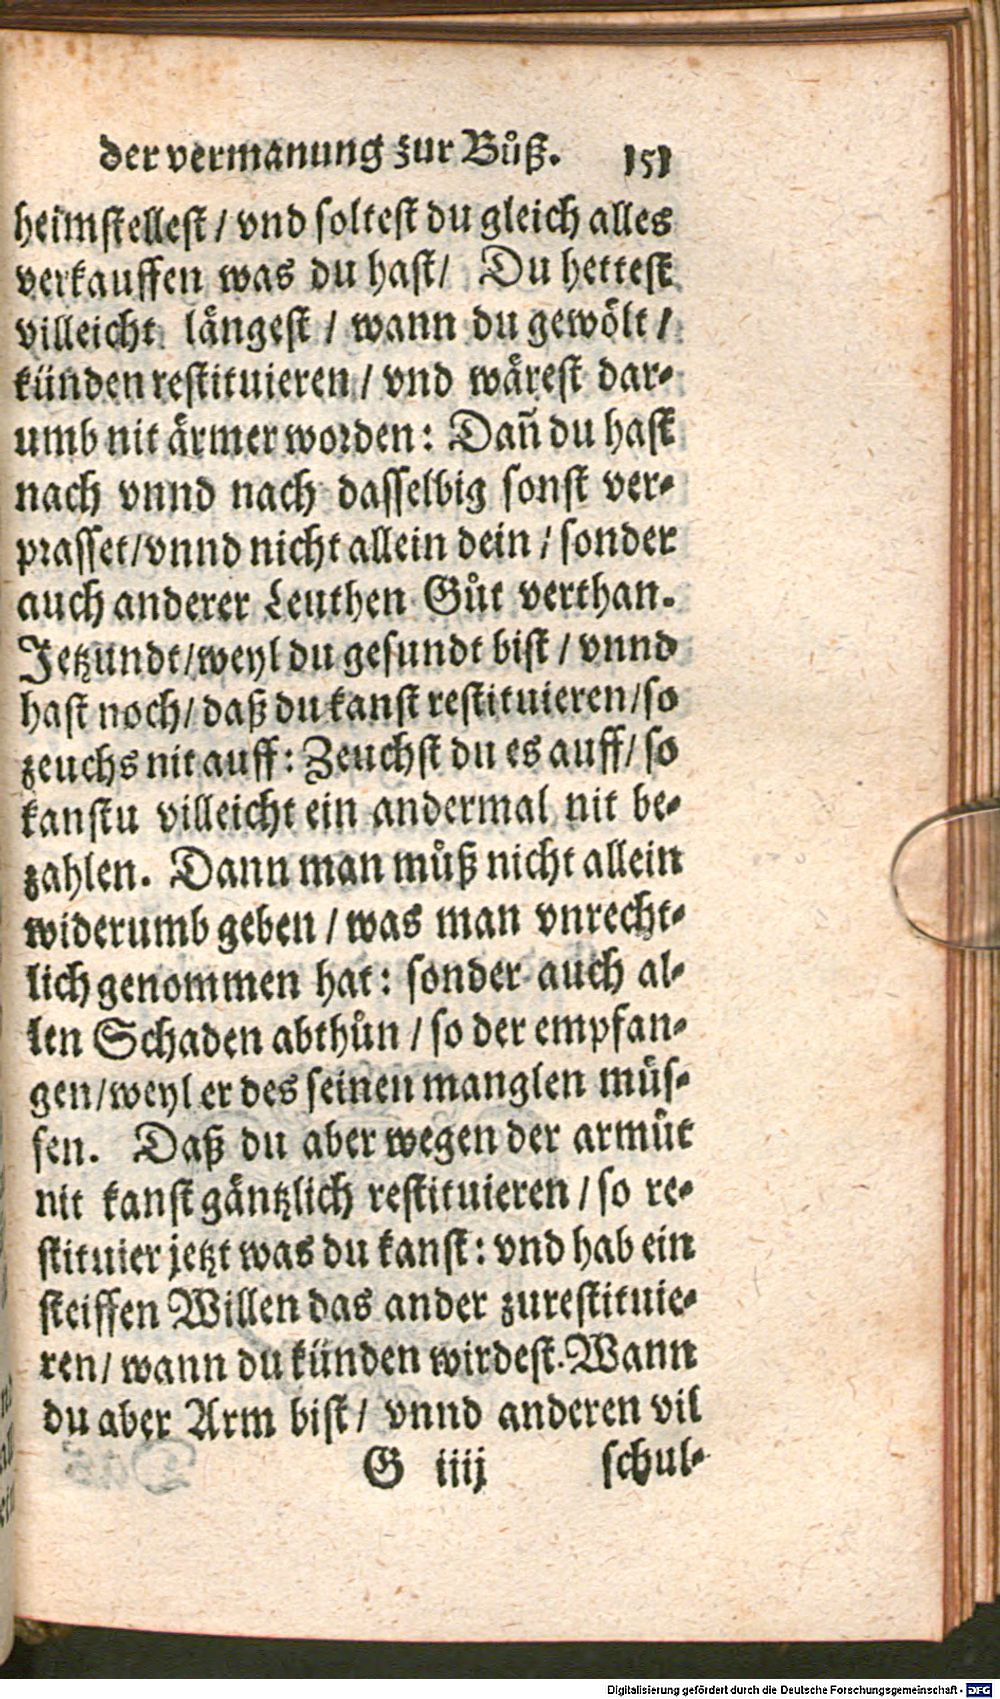 der vermanung zur Bůß. 151
heimstellest / vnd soltest du gleich alles
verkauffen was du hast / Du hettest
villeicht längest / wann du gewölt /
künden restituieren / vnd wärest dar-
umb nit ärmer worden: Dañ du hast
nach vnnd nach dasselbig sonst ver-
prasset / vnnd nicht allein dein / sonder
auch anderer Leuthen Gůt verthan.
Jetzundt / weyl du gesundt bist / vnnd
hast noch / daß du kanst restituieren / so
zeuchs nit auff: Zeuchst du es auff / so
kanstu villeicht ein andermal nit be-
zahlen. Dann man můß nicht allein
widerumb geben / was man vnrecht-
lich genommen hat: sonder auch al-
len Schaden abthůn / so der empfan-
gen / weyl er des seinen manglen müs-
sen. Daß du aber wegen der armůt
nit kanst gäntzlich restituieren / so re-
stituier jetzt was du kanst: vnd hab ein
steiffen Willen das ander zurestituie-
ren / wann du künden wirdest. Wann
du aber Arm bist / vnnd anderen vil
G iiij schul-
Digitalisierung gefördert durch die Deutsche Forschungsgemeinschaft - DFG